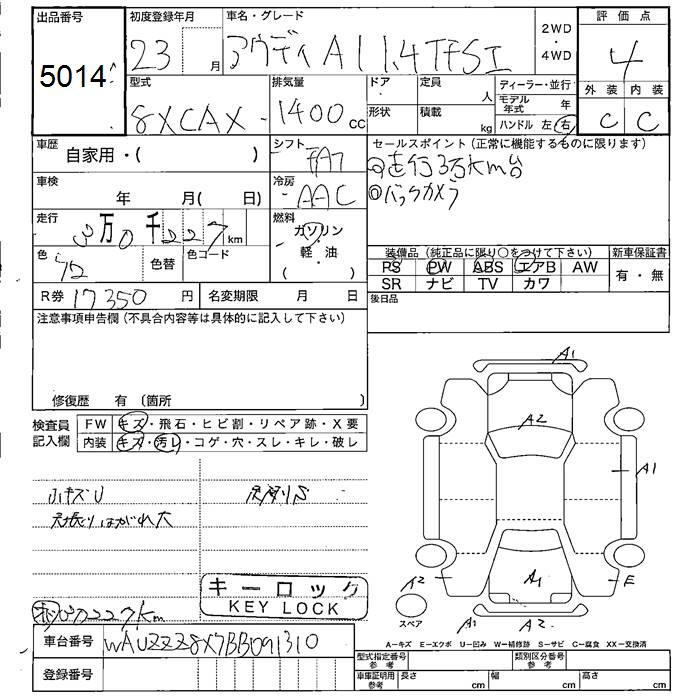 出品番号 初度登録年月 車名・グレード 2WD・4WD 評価点
5014 23 月 アウディ A1 1.4 TFSI 4
型式 排気量 ドア 定員 人 ディーラー・並行 外装 内装
8XCAX 1400 cc 形状 積載 kg モデル年式 年 ハンドル 左・右 C C
車歴 自家用・( ) シフト FA7 セールスポイント (正常に機能するものに限ります)
◎走行3万km台
車検 年 月( 日) 冷房 AAC ◎バックカメラ
走行 3万0千227km 燃料 ガソリン・軽・油・( )
色 色替 色コード 装備品 (純正品に限り○をつけて下さい) 新車保証書
PS PW ABS エアB AW 有・無
SR ナビ TV カワ
R券 17350 円 名変期限 月 日 後日品
注意事項申告欄 (不具合内容等は具体的に記入して下さい)
修復歴 有 (箇所 )
検査員記入欄 FW キズ・飛石・ヒビ割・リペア跡・X要
内装 キズ・汚レ・コゲ・穴・スレ・キレ・破レ
小キズU
天張りはがれ大
キーロック
KEY LOCK
30227km
車台番号 WAUZZZ8X7BB091310
登録番号
A1
A2
A1
A2 A1 E
スペア A1 A2
A-キズ E-エクボ U-凹み W-補修跡 S-サビ C-腐食 XX-交換済
型式指定番号 参考 類別区分番号 参考
車庫証明用 参考 長さ cm 幅 cm 高さ cm